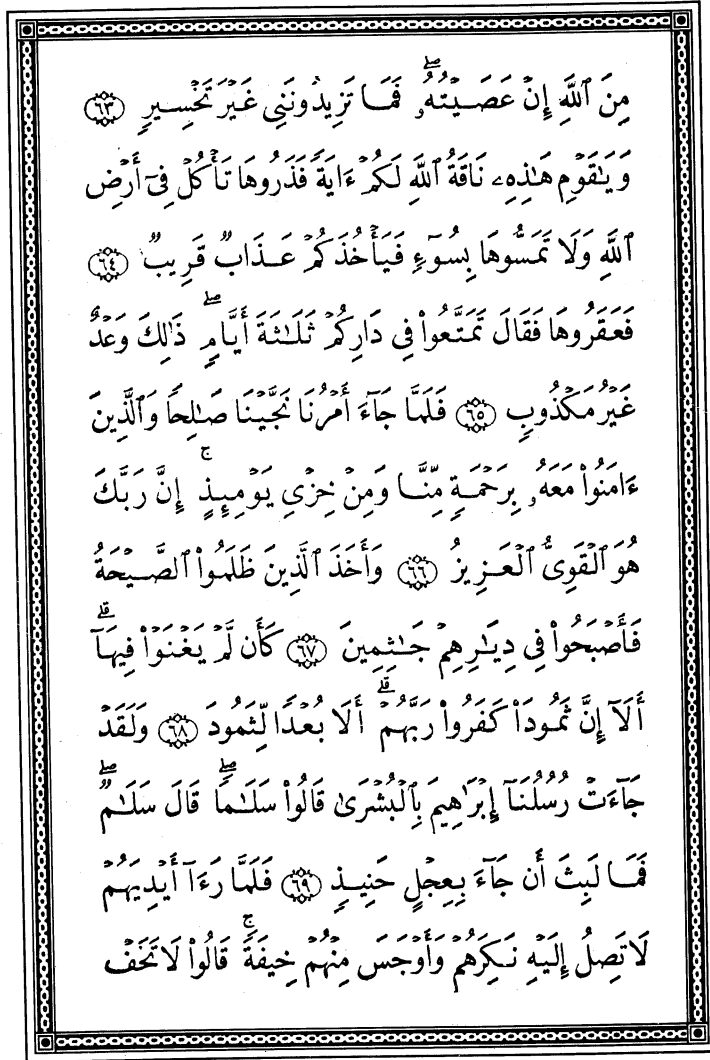 مِنَ ٱللَّهِ إِنْ عَصَيْتُهُۥۖ فَمَا تَزِيدُونَنِى غَيْرَ تَخْسِيرٍ ٦٣
وَيَٰقَوْمِ هَٰذِهِۦ نَاقَةُ ٱللَّهِ لَكُمْ ءَايَةً فَذَرُوهَا تَأْكُلْ فِىٓ أَرْضِ
ٱللَّهِ وَلَا تَمَسُّوهَا بِسُوٓءٍ فَيَأْخُذَكُمْ عَذَابٌ قَرِيبٌ ٦٤
فَعَقَرُوهَا فَقَالَ تَمَتَّعُوا۟ فِى دَارِكُمْ ثَلَٰثَةَ أَيَّامٍۖ ذَٰلِكَ وَعْدٌ
غَيْرُ مَكْذُوبٍ ٦٥ فَلَمَّا جَآءَ أَمْرُنَا نَجَّيْنَا صَٰلِحًا وَٱلَّذِينَ
ءَامَنُوا۟ مَعَهُۥ بِرَحْمَةٍ مِّنَّا وَمِنْ خِزْىِ يَوْمِئِذٍۚ إِنَّ رَبَّكَ
هُوَ ٱلْقَوِىُّ ٱلْعَزِيزُ ٦٦ وَأَخَذَ ٱلَّذِينَ ظَلَمُوا۟ ٱلصَّيْحَةُ
فَأَصْبَحُوا۟ فِى دِيَٰرِهِمْ جَٰثِمِينَ ٦٧ كَأَن لَّمْ يَغْنَوْا۟ فِيهَآۗ
أَلَآ إِنَّ ثَمُودَا۟ كَفَرُوا۟ رَبَّهُمْۗ أَلَا بُعْدًا لِّثَمُودَ ٦٨ وَلَقَدْ
جَآءَتْ رُسُلُنَآ إِبْرَٰهِيمَ بِٱلْبُشْرَىٰ قَالُوا۟ سَلَٰمًاۖ قَالَ سَلَٰمٌۖ
فَمَا لَبِثَ أَن جَآءَ بِعِجْلٍ حَنِيذٍ ٦٩ فَلَمَّا رَءَآ أَيْدِيَهُمْ
لَا تَصِلُ إِلَيْهِ نَكِرَهُمْ وَأَوْجَسَ مِنْهُمْ خِيفَةًۚ قَالُوا۟ لَا تَخَفْ